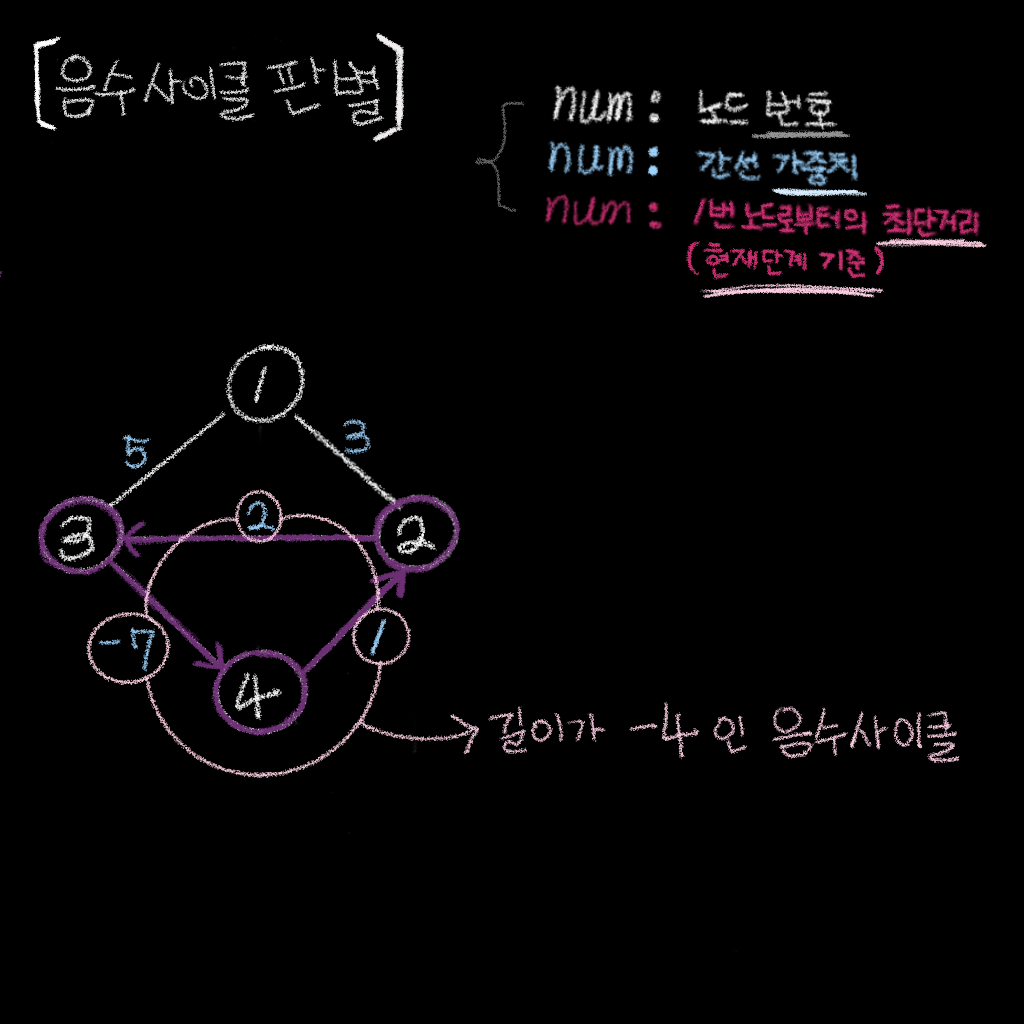 [음수사이클 판별]
num : 노드 번호
num : 간선 가중치
num : 1번 노드로부터의 최단거리
(현재단계 기준)
1
5
3
3
2
2
-7
1
4
길이가 -4 인 음수사이클